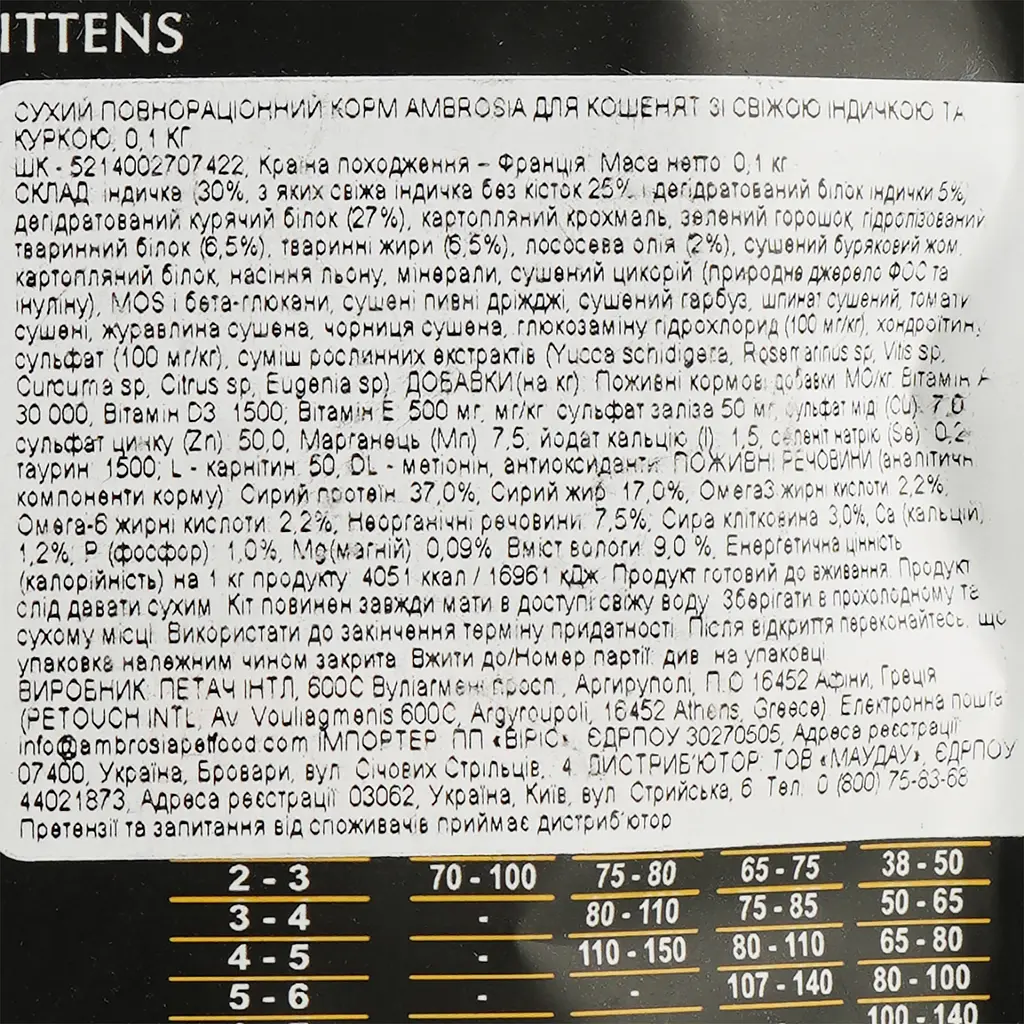 ITTENS
СУХИЙ ПОВНОРАЦІОННИЙ КОРМ AMBROSIA ДЛЯ КОШЕНЯТ ЗІ СВІЖОЮ ІНДИЧКОЮ ТА
КУРКОЮ, 0,1 КГ
ШК - 5214002707422, Країна походження – Франція. Маса нетто 0,1 кг
СКЛАД: індичка (30%, з яких свіжа індичка без кісток 25% і дегідратований білок індички 5%,
дегідратований курячий білок (27%), картопляний крохмаль, зелений горошок, гідролізований
тваринний білок (6,5%), тваринні жири (6,5%), лососева олія (2%), сушений буряковий жом,
картопляний білок, насіння льону, мінерали, сушений цикорій (природне джерело ФОС та
інуліну), MOS і бета-глюкани, сушені пивні дріжджі, сушений гарбуз, шпинат сушений, томати
сушені, журавлина сушена, чорниця сушена, глюкозаміну гідрохлорид (100 мг/кг), хондроїтин,
сульфат (100 мг/кг), суміш рослинних екстрактів (Yucca schidigera, Rosemarinus sp, Vitis sp,
Curcuma sp, Citrus sp, Eugenia sp). ДОБАВКИ(на кг): Поживні кормові добавки МО/кг: Вітамін А
30 000, Вітамін D3 1500, Вітамін Е 500 мг, мг/кг сульфат заліза 50 мг, сульфат міді (Cu): 7,0
сульфат цинку (Zn): 50,0, Марганець (Mn) 7,5, йодат кальцію (I): 1,5, селеніт натрію (Se) 0,2
таурин 1500; L - карнітин: 50, DL - метіонін, антиоксиданти. ПОЖИВНІ РЕЧОВИНИ (аналітичн
компоненти корму): Сирий протеїн 37,0%, Сирий жир 17,0%, Омега3 жирні кислоти 2,2%,
Омега-6 жирні кислоти: 2,2%, Неорганічні речовини: 7,5%, Сира клітковина 3,0%, Ca (кальцій)
1,2%, P (фосфор): 1,0%, Mg(магній) 0,09% Вміст вологи: 9,0 %, Енергетична цінність
(калорійність) на 1 кг продукту: 4051 ккал / 16961 кДж. Продукт готовий до вживання. Продукт
слід давати сухим. Кіт повинен завжди мати в доступі свіжу воду. Зберігати в прохолодному та
сухому місці. Використати до закінчення терміну придатності. Після відкриття переконайтесь, що
упаковка належним чином закрита. Вжити до/Номер партії: див. на упаковці.
ВИРОБНИК: ПЕТАЧ ІНТЛ, 600С Вуліагмені просп., Аргируполі, П.О 16452 Афіни, Греція
(PETOUCH INTL, Av. Vouliagmenis 600C, Argyroupoli, 16452 Athens, Greece). Електронна пошта
info@ambrosiapetfood.com ІМПОРТЕР: ПП «ВІРІС», ЄДРПОУ 30270505, Адреса реєстрації:
07400, Україна, Бровари, вул. Січових Стрільців, 4. ДИСТРИБ'ЮТОР: ТОВ «МАУДАУ», ЄДРПОУ
44021873, Адреса реєстрації: 03062, Україна, Київ, вул. Стрийська, 6. Тел.: 0 (800) 75-83-68
Претензії та запитання від споживачів приймає дистриб'ютор
2 - 3 70 - 100 75 - 80 65 - 75 38 - 50
3 - 4 - 80 - 110 75 - 85 50 - 65
4 - 5 - 110 - 150 80 - 110 65 - 80
5 - 6 - - 107 - 140 80 - 100
100 - 140